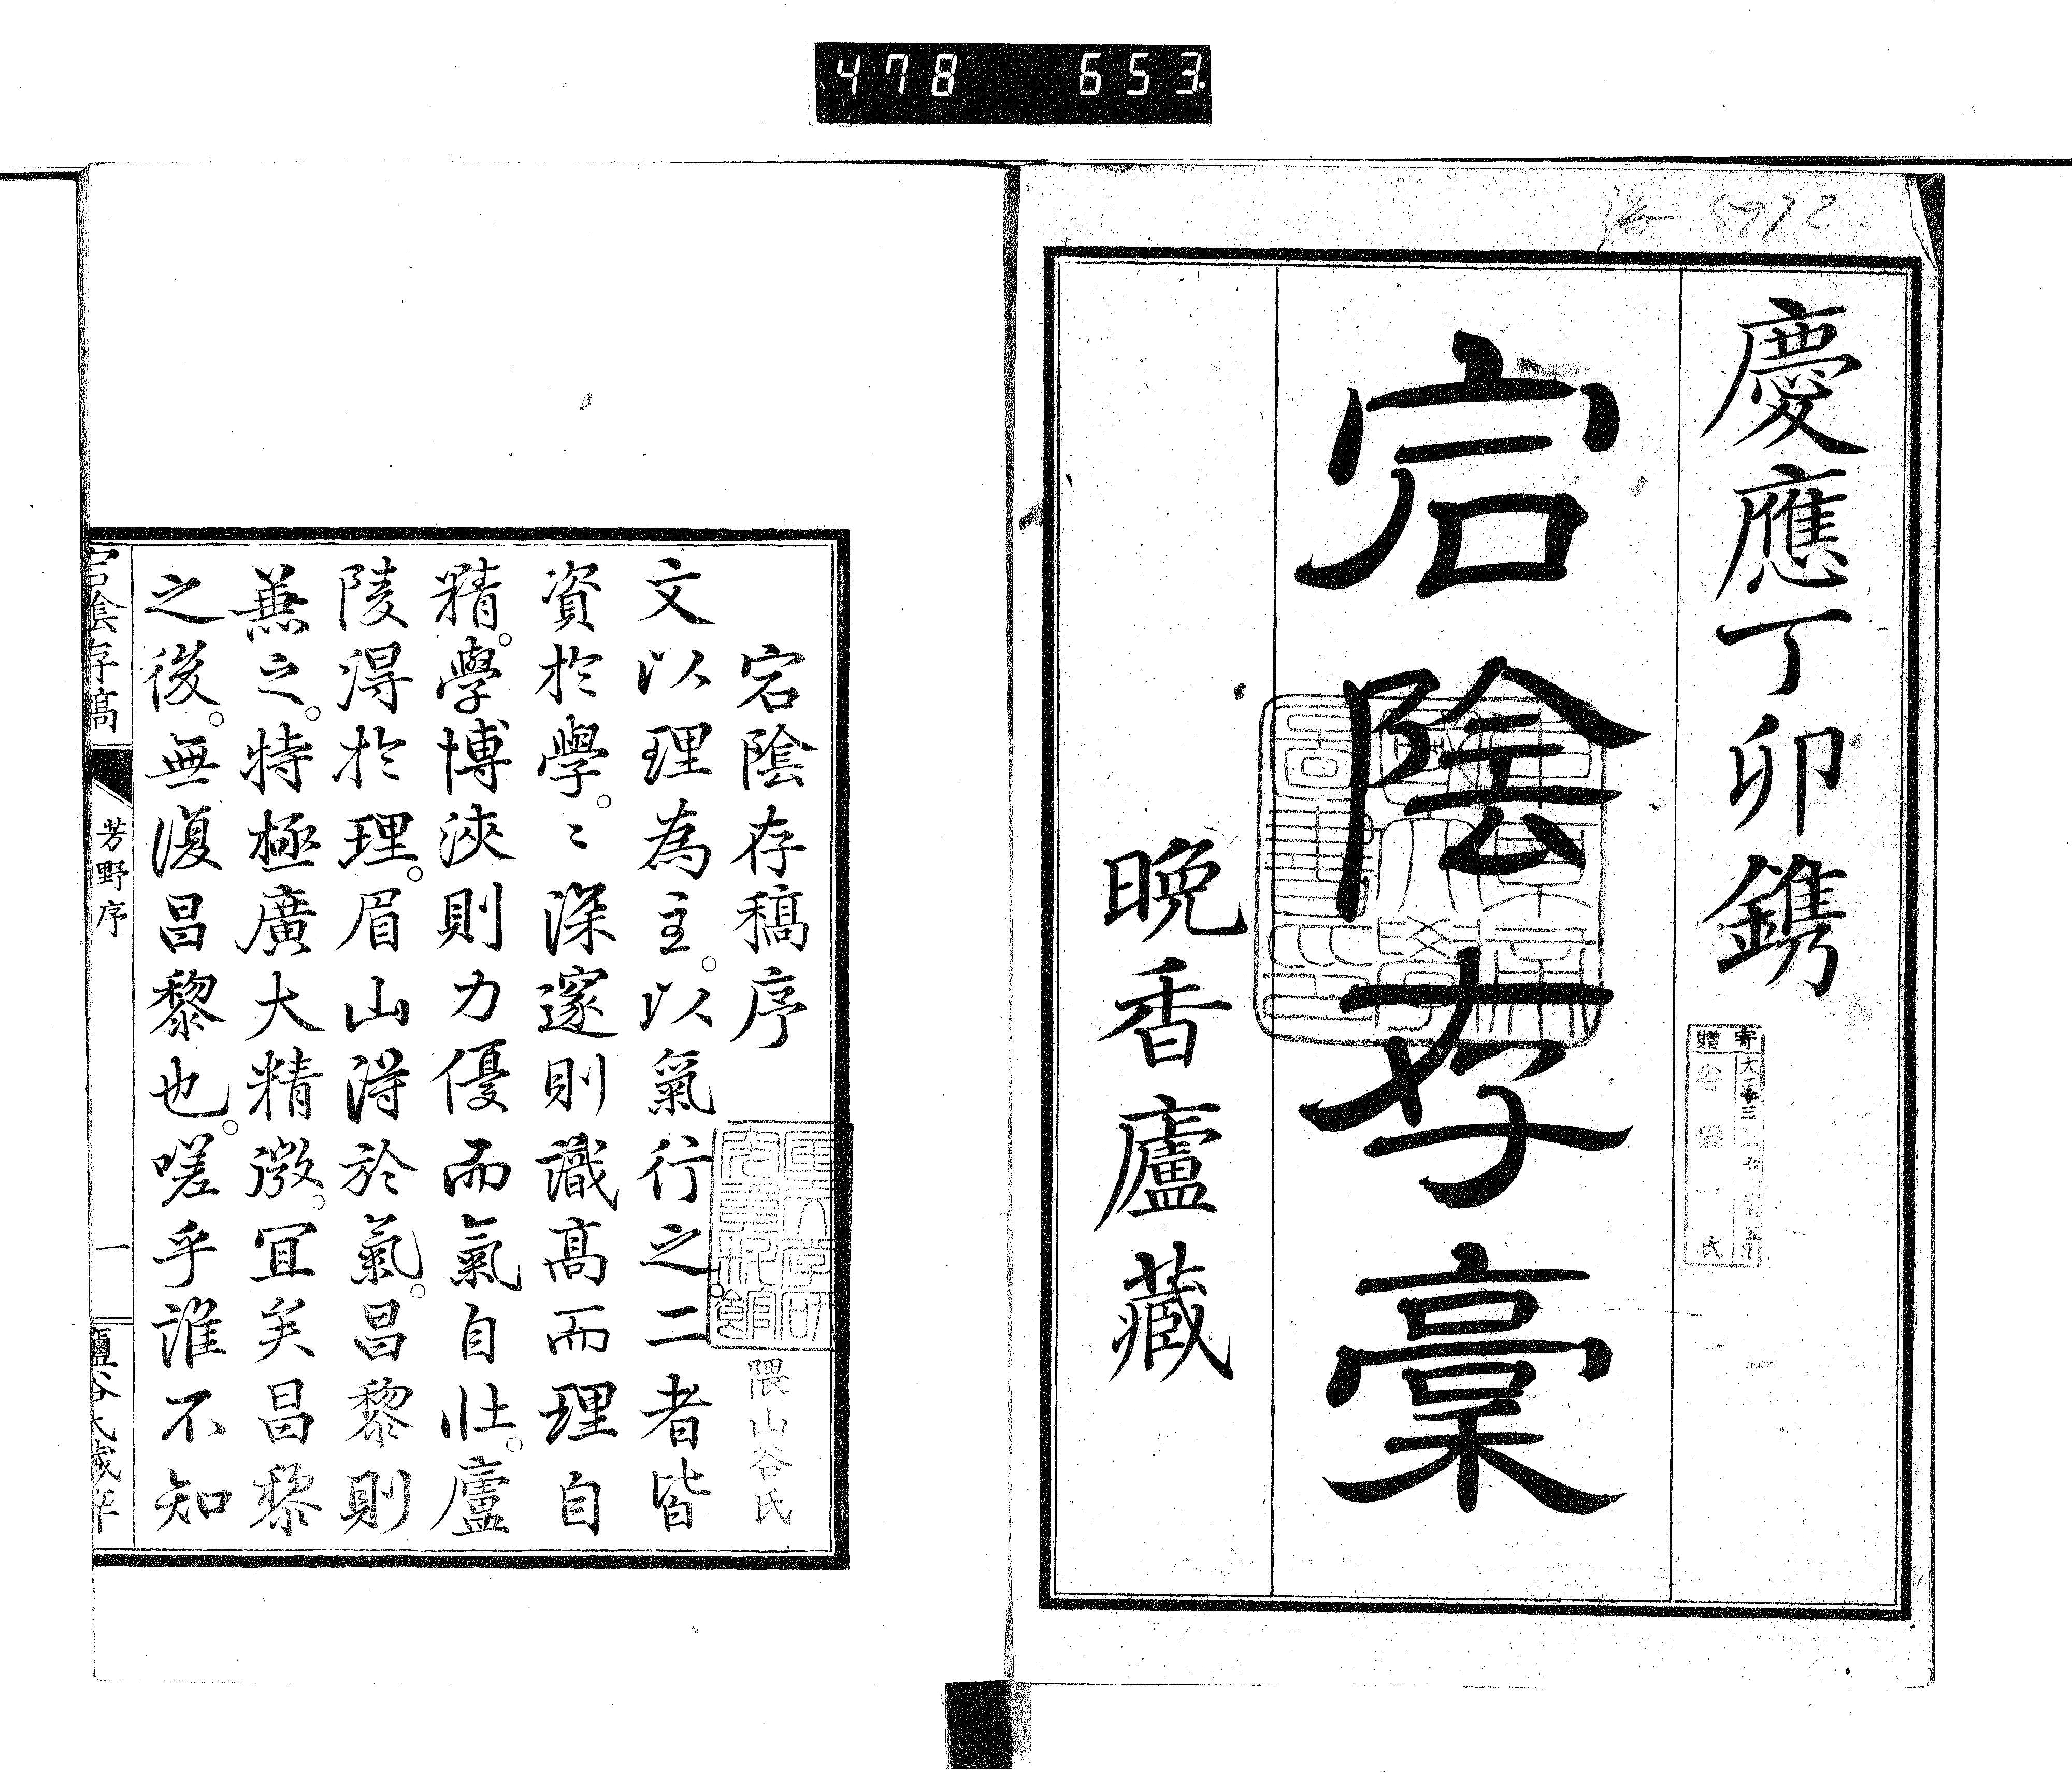 478 653
5772
慶應丁卯鐫
宕陰存稾
晩香廬藏
寄贈
氏
宕陰存稿序
隈山谷氏
文以理為主。以氣行之。二者皆
資於學。〻深邃則識高而理自
精。學博浹則力優而氣自壯。廬
陵得於理。眉山得於氣。昌黎則
兼之。特極廣大精微。宜矣昌黎
之後。無復昌黎也。嗟乎誰不知
宕陰存稿
芳野序
一